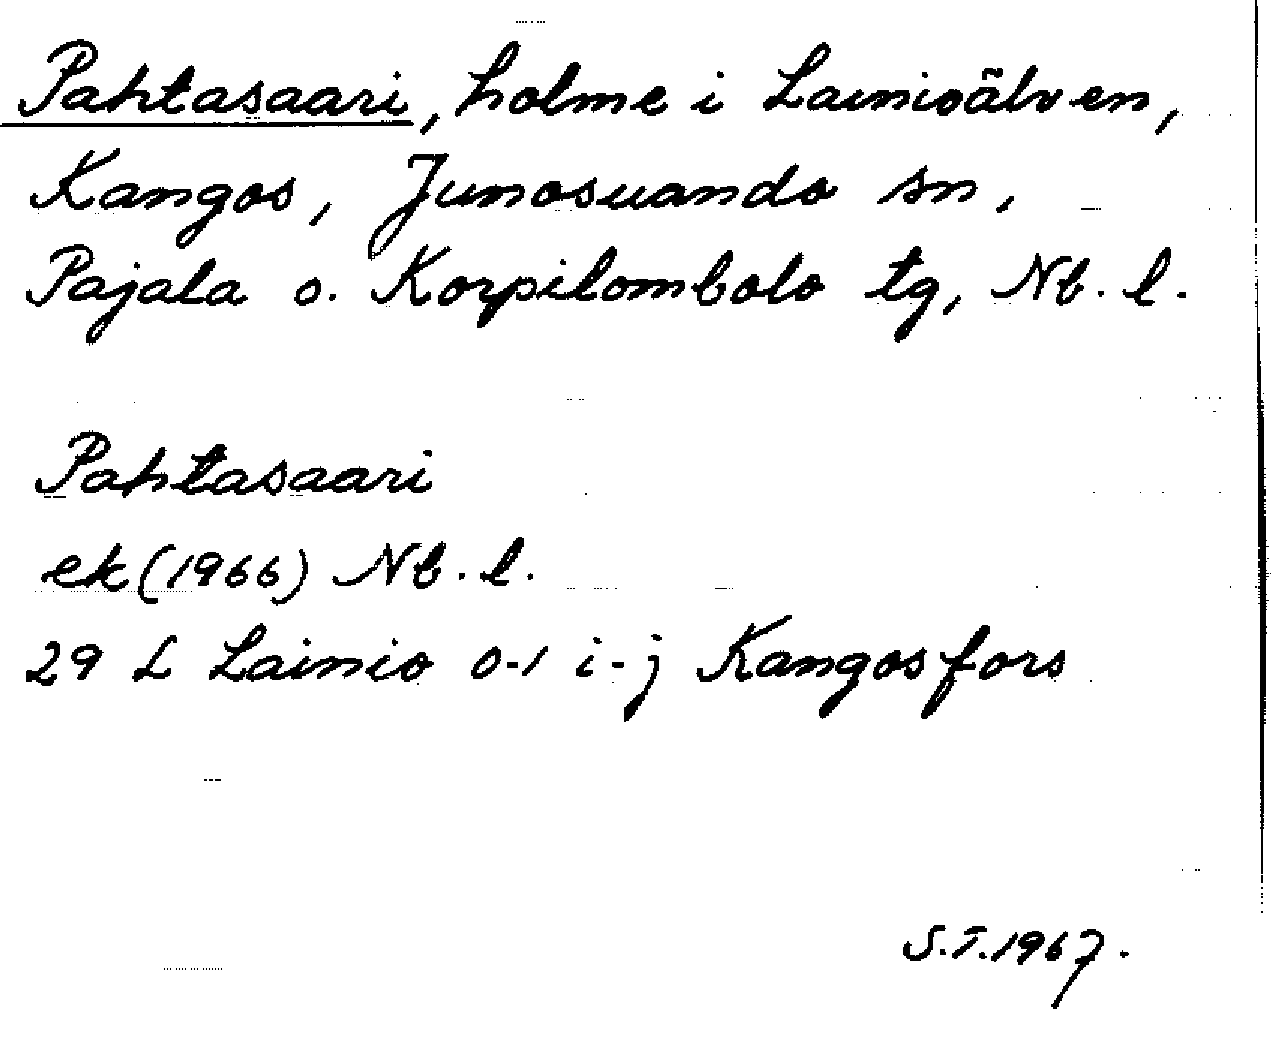 Pahtasaari, holme i Lainioälven,
Kangos, Junosuando sn,
Pajala o. Korpilombolo tg, Nb. l.
Pahtasaari
ek (1966) Nb. l.
29 L Lainio 0-1 i-j Kangosfors
S.T. 1967.